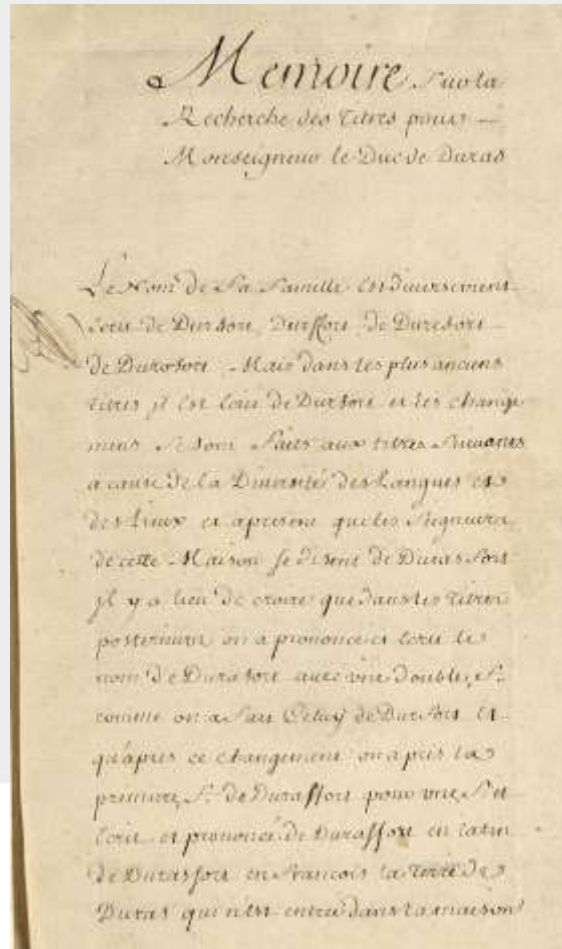 Memoire Sur la
Recherche des Titres pour
Monseigneur le Duc de Duras
Le Nom de Sa Famille Est diversement
Ecrit de Dursort, Durffort, de Duresort
de Durofort, Mais dans les plus anciens
titres jl Est Ecrit de Dursort et les change
mens Se sont Faits aux titres Suivants
a cause de la Diversité des Langues et
des Lieux et apresent que les Seigneurs
de cette Maison se disent de Duras fort
jl y a lieu de croire que dans les titres
posterieurs on a prononcé et Ecrit le
nom de Durafort avec vne double, F.
comme on a Fait Celuy de Durfort Et
qu'apres ce changement on a pris la
premiere, F. de Duraffort pour vne S et
Ecrit et prononcé de Duraffort en latin
de Durasfort en Francois la Terre de
Duras qui n'Est entrée dans la maison